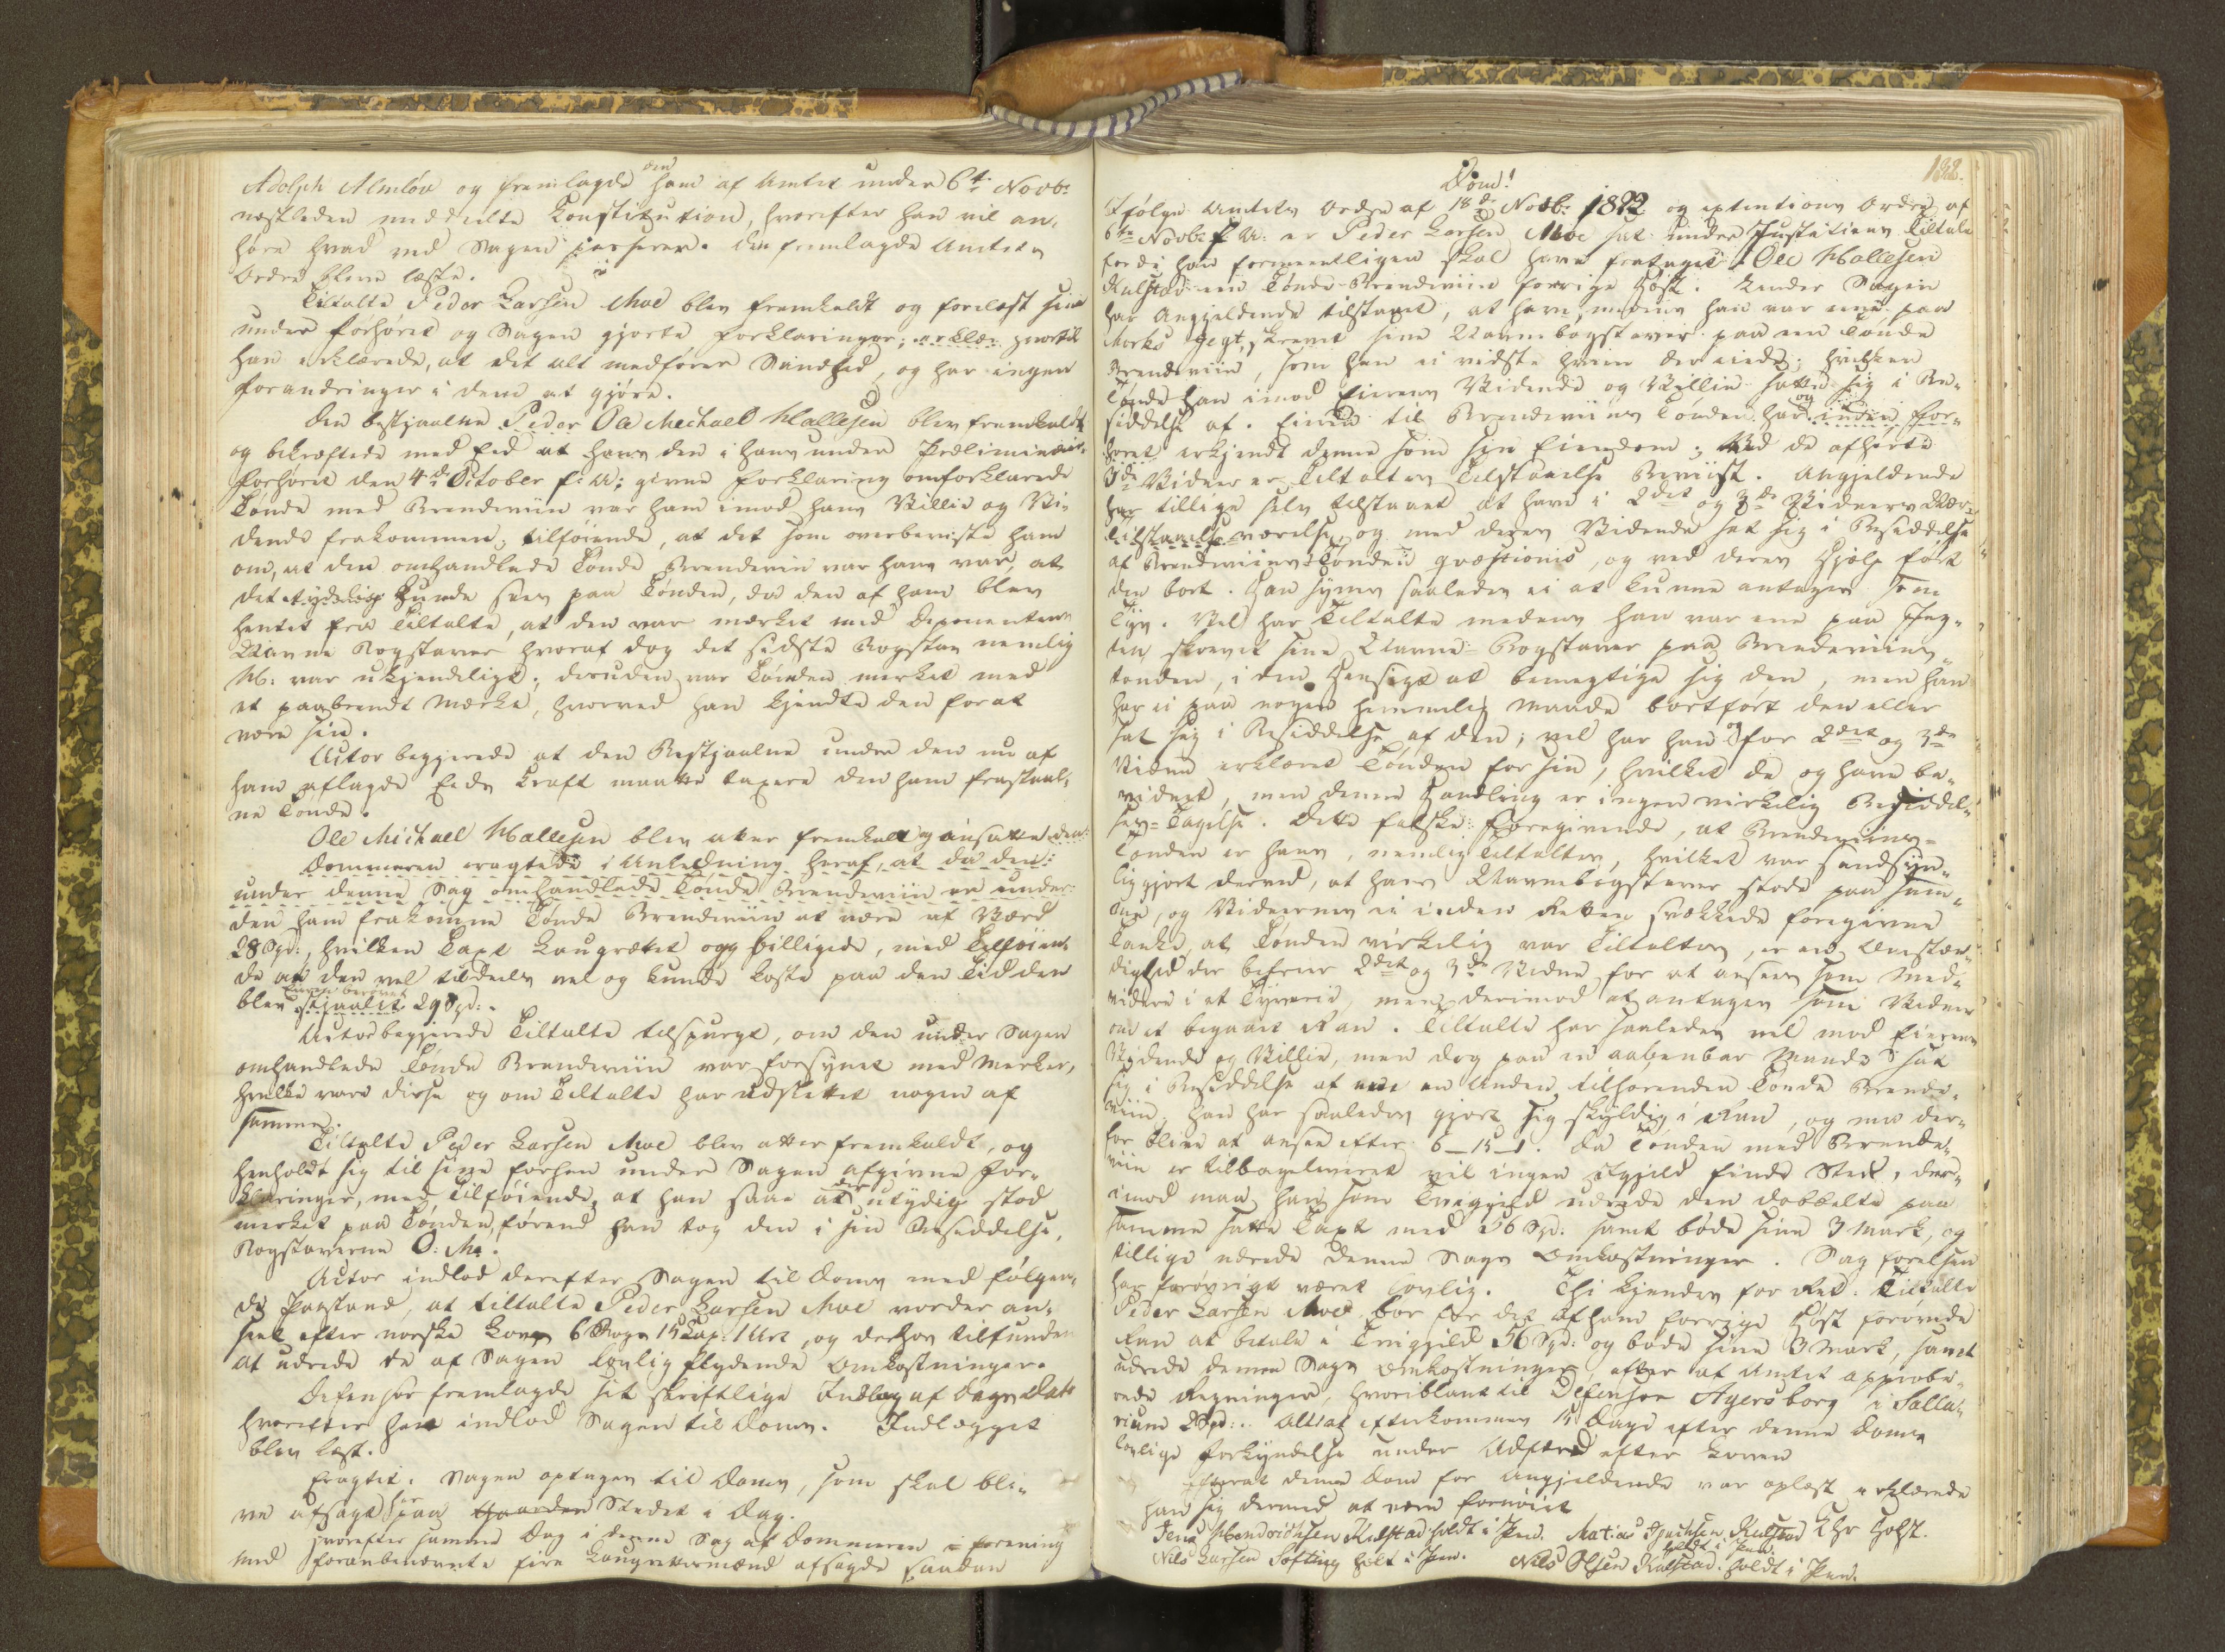 Adolph Almlöv og fremlagde den ham af Amtet under 6te Novbr
nestleden meddeelte Constitution, hvorefter han vil an-
høre hvad ved Sagen passerer. den fremlagde Amtets
Ordre blev læste.
Tiltalte Peder Larsen Moe blev fremkaldt og forelæst sine
under Forhøret og Sagen gjorte Forklaringer; hvortil
han erklærede, at det alt medfører Sandhed, og har ingen
forandringer i dem at gjøre.
Den bestjaalne Peder Ole Michael Hallesen blev fremkaldt
og bekræftede med Eed at hans den i hans under Præliminair-
forhøret den 4de October f: A: givne Forklaring omforklarede
Tønde med Brendeviin var ham imod hans Villie og Vi-
dende frakommen, tilføiende, at det som overbeviste ham
om, at den omhandlede Tønde Brendeviin var hans var, at
det tydelig kunde sees paa Tønden, da den af ham blev
hentet fra Tiltalte, at den var mærket med Deponentens
Navne Bogstaver hvoraf dog det sidste Bogstav nemlig
H: var ukjendeligt; desuden var Tønden merket med
et paabrendt Mærke, hvorved han kjendte den for at
være sin.
Actor begjerede at den Bestjaalne under den nu af
ham aflagde Eeds Kraft maatte taxere den ham frastaal-
ne Tønde.
Ole Michael Hallesen blev atter fremkaldt og ansatte den
Dommeren eragtede i Anledning heraf, at da den
under denne Sag omhandlede Tønde Brendeviin er under
den ham frakomne Tønde Brendeviin at være af Værd
28 Spd:, hvilken Taxt Laugrettet og billigede, med Tilføien-
de at den vel tildeels vel og kunde koste paa den Tid den
blev Eieren berøvet stjaalet 29 Spd:.
Actor begjerede Tiltalte tilspurgt, om den under Sagen
omhandlede Tønde Brendeviin var forsynet med Merker,
hvilke vare disse og om Tiltalte har udslettet nogen af
samme.
Tiltalte Peder Larsen Moe blev atter fremkaldt, og
henholdt sig til sine forhen under Sagen afgivne For-
klaringer, med Tilføiende, at han saae at der utydelig stod
merket paa Tønden, førend han tog den i sin Besiddelse,
Bogstaverne O: M:.
Actor indlod derefter Sagen til Doms med følgen-
de Paastand, at tiltalte Peder Larsen Moe vorder an-
seet efter norske Lovs 6 Bogs 15 Cap: 1 Art, og derhos tilfunden
at udrede de af Sagen lovlig flydende Omkostninger.
Defensor fremlagde sit skriftlige Indlæg af Dags Dato
hvorefter han indlod Sagen til Doms. Indlægget
blev læst.
Eragtet: Sagen optages til Doms, som skal bli-
ve afsagt her paa Gaarden Stedet i Dag.
hvorefter samme Dag i denne Sag af Dommeren i Forening
med foranbenævnte fire Laugrettesmænd afsagde saadan
132.
Dom!
Ifølge Amtets Ordre af 18de Novbr: 1822 og extentions Ordre af
6te Novbr: f: A: er Peder Larsen Moe sat under Justitiens Tiltale
fordi han formeentligen skal have frataget Ole Hallesen
Kulstad een Tønde Brendeviin forrige Høst. Under Sagen
har Angjeldende tilstaaet, at have, medens han var ene paa
Morks Jegt, skrevet sine Navnebogstaver paa een Tønde
Brendeviin, som han ei vidste hvem der eiede; hvilken
Tønde han imod Eierens Vidende og Villie satte sig i Be-
siddelse af. Eieren til Brendeviins Tønden har og inden For-
høret erkjendt denne som sin Eiendom; Ved de afhørte
3de Vidner er Tiltaltes Tilstaaelse Beviist. Angjeldende
har tillige selv tilstaaet at have i 2det og 3de Vidners Nær-
værelse, og med deres Vidende sat sig i Besiddelse
af Brendeviins Tønden quæstionis, og ved deres Hjelp ført
den bort. Han synes saaledes ei at kunne antages som
Tyv. Vel har Tiltalte medens han var ene paa Jeg-
ten skrevet sine Navne-Bogstaver paa Brendeviins
tønden, i den Hensigt at bemegtige sig den, men han
har ei paa nogen hemmelig Maade bortført den eller
sat sig i Besiddelse af den; vel har han og for 2det og 3de
Vidne erklæret Tønden for sin, hvilket de og have be-
vidnet, men denne Handling er ingen virkelig Besiddel-
ses-Tagelse. Dette falske Foregivende, at Brendeviins-
Tønden er hans, nemlig Tiltaltes, hvilket var sandsyn-
liggjort derved, at hans Navnebogstaver stode paa sam-
me, og Vidnernes ei inden Retten svækkede foregivne
Tanke, at Tønden virkelig var Tiltaltes, er en Omstæn-
dighed der befrier 2det og 3de Vidne for at ansees som Med-
videre i et Tyverie, men derimod at antages som Vidner
om et begaaet Ran. Tiltalte har saaledes vel mod Eierens
Vidende og Villie, men dog paa en aabenbar Maade sat
sig i Besiddelse af en Anden tilhørende Tønde Brende-
viin, han har saaledes gjort sig skyldig i Ran, og maa der-
for blive at ansee efter 6_15_1. Da Tønden med Brende-
viin er tilbageleveret vil ingen Igjeld finde Sted, der-
imod maa han som Tvegjeld udrede den dobbelte paa
samme satte Taxt med 56 Spd. samt bøde sine 3 Mark, og
tillige udrede denne Sags Omkostninger. Sagførelsen
har forøvrigt været lovlig. Thi kjendes for Ret: Tiltalte
Peder Larsen Moe bør for det af ham forrige Høst forøvede
Ran at betale i Tvigjeld 56 Spd: og bøde sine 3 Mark, samt
udrede denne Sags Omkostninger, efter af Amtet approbe-
rede Regninger, hvoriblant til Defensor Agersborg i Salla-
rium 2 Spd:. Alt at efterkommes 15 Dage efter denne Doms
lovlige Forkyndelse under Adfærd efter Loven
Efterat denne Dom for Angjeldende var oplæst erklærede
han sig dermed at være fornøiet
Jens Hendrichsen Kulstad holdt i Pen. Matias Isachsen Kulstad holdt i Pen. Chr Holst.
Nils Larsen Søfting holt i Pen. Nils Olsen Kulstad. holdt i Pen.